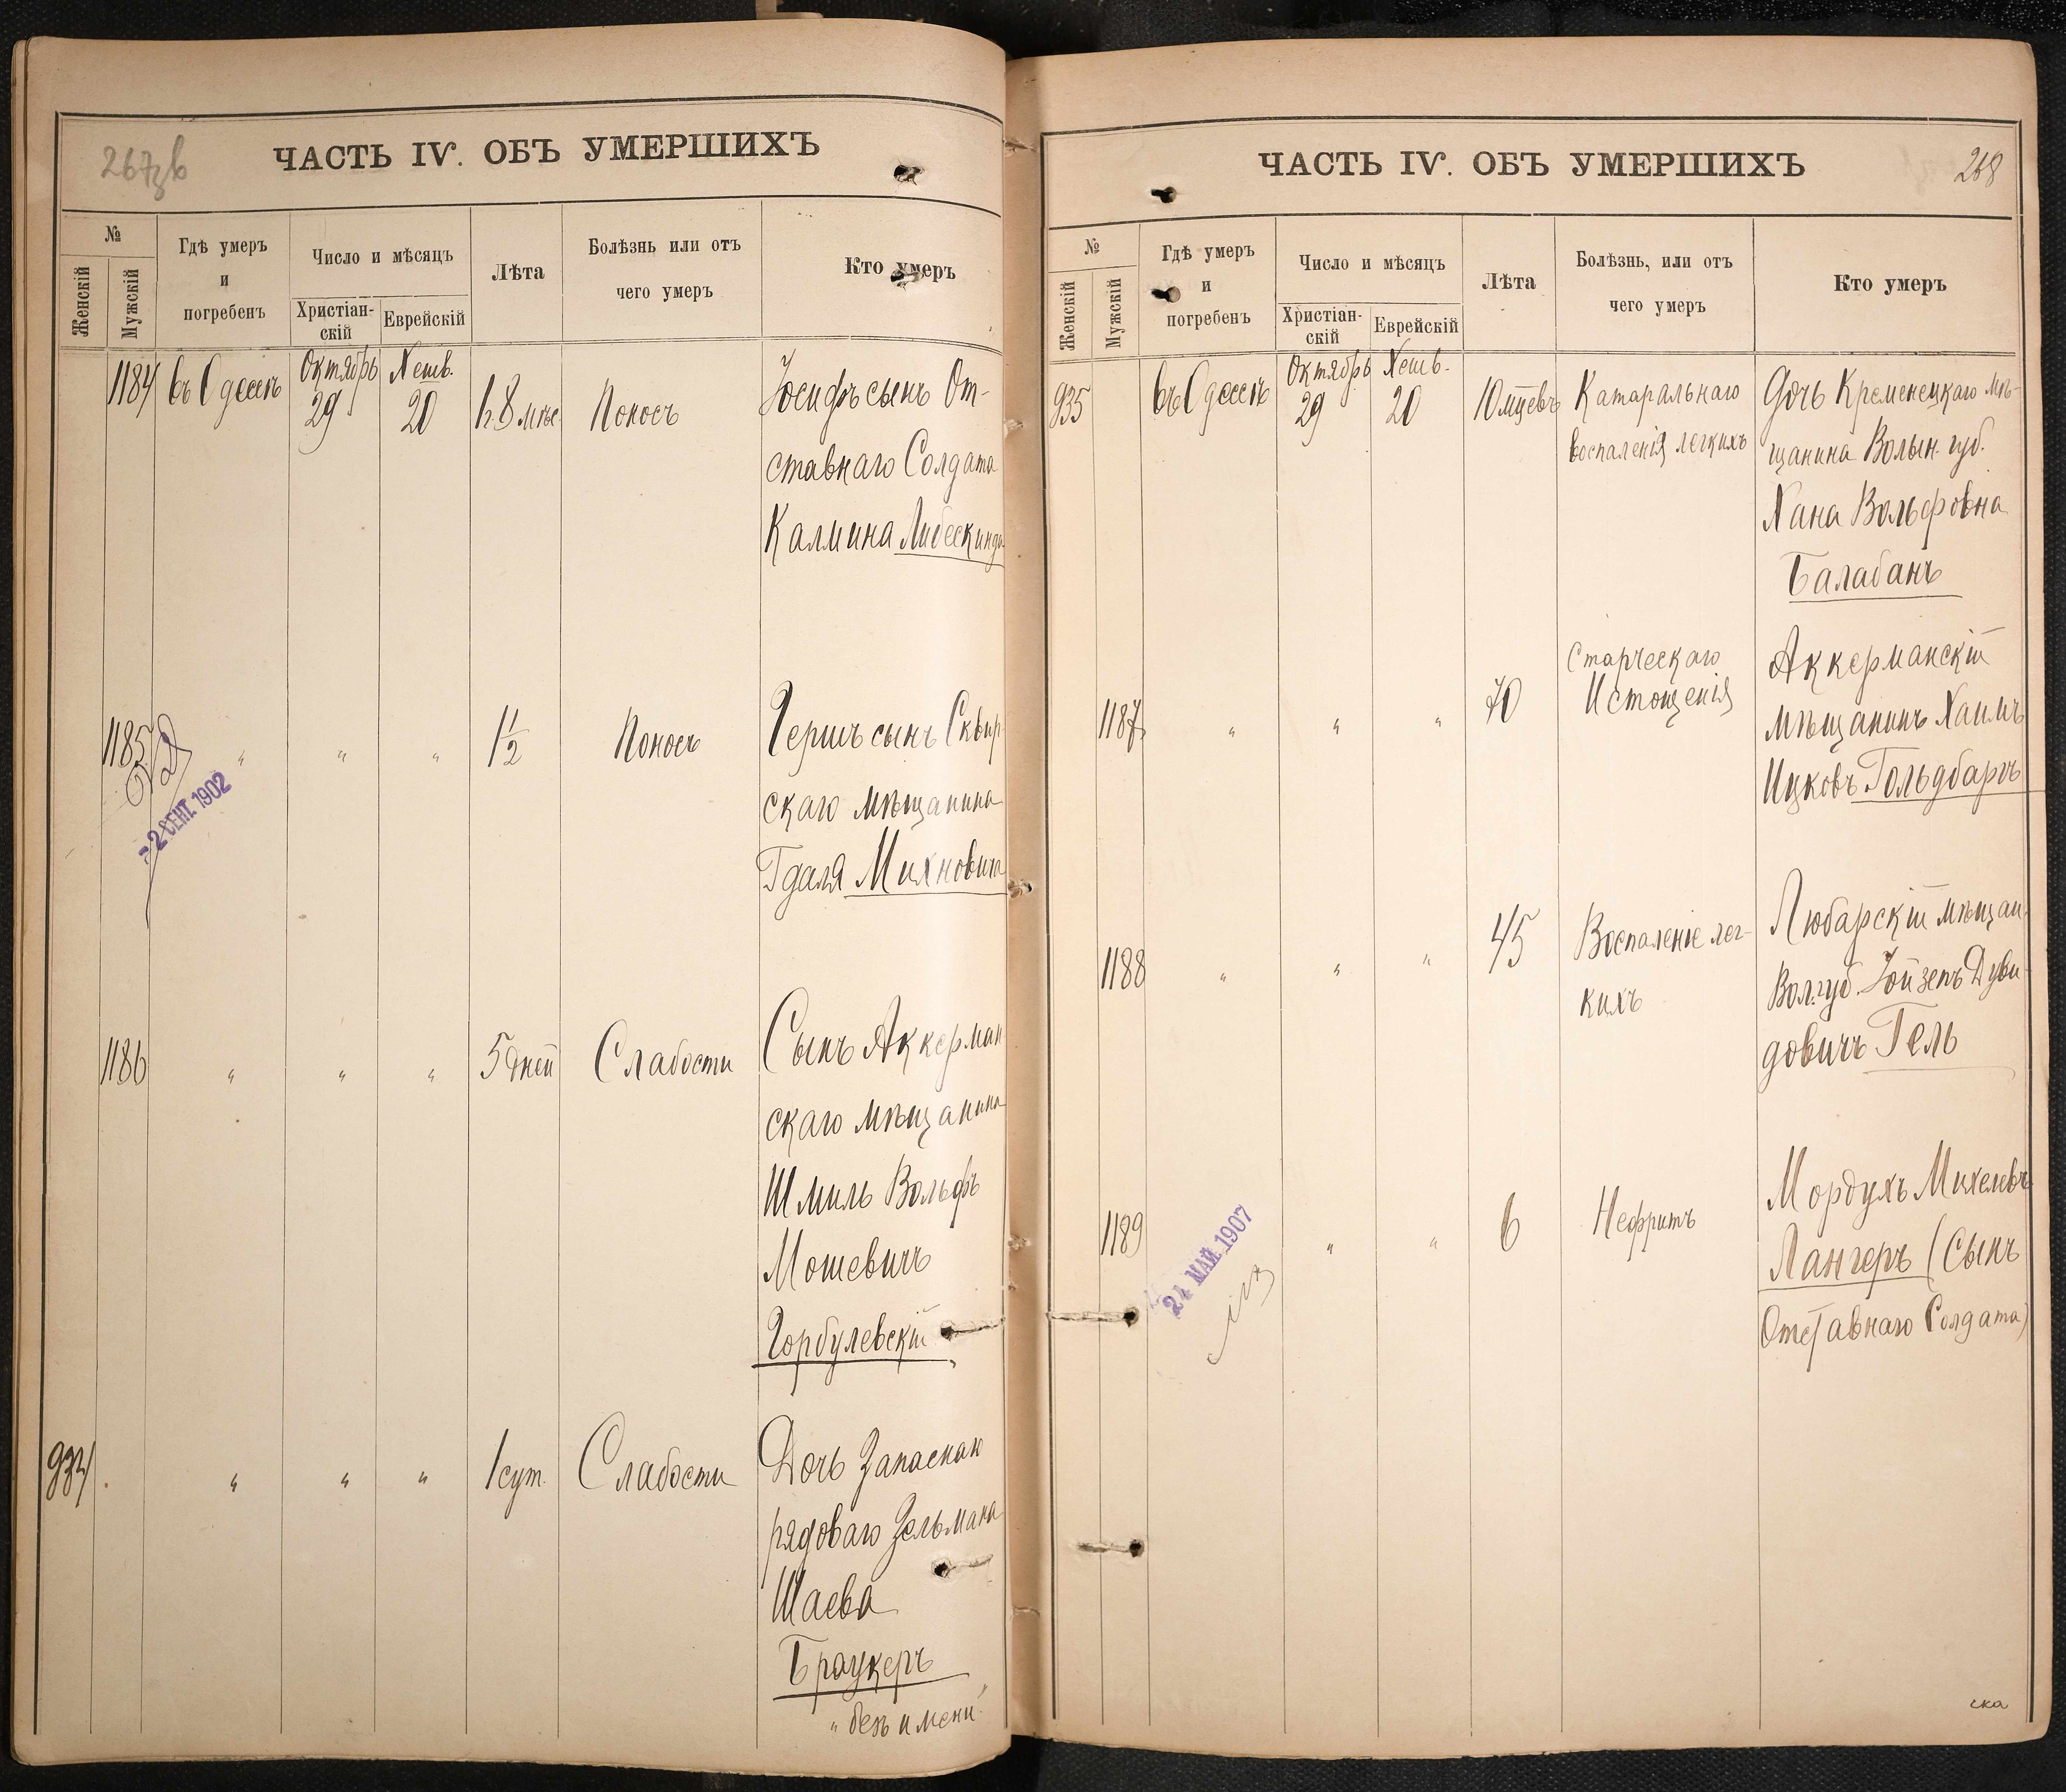 267зв
ЧАСТЬ IV. ОБЪ УМЕРШИХЪ
№
Женскій
Мужскій
Гдѣ умеръ
и
погребенъ
Число и мѣсяцъ
Христіан-
скій
Еврейскій
Лѣта
Болѣзнь или отъ
чего умеръ
Кто умеръ
1184 въ Одессѣ Октябрь 29 Хешв. 20 1 г. 8 мѣс. Поносъ Іосифъ сынъ От-
ставнаго Солдата
Калмина Либескинда
1185 " " " 1 1/2 Поносъ Гершъ сынъ Сквир
скаго мѣщанина
Гдаля Михновича
2 СЕНТ. 1902
1186 " " " 5 дней Слабости Сынъ Аккерман
скаго мѣщанина
Шмиль Вольфъ
Мошевичъ
Горбулевскій
934 " " " 1 сут. Слабости Дочь Запаснаго
рядоваго Зельмана
Шаева
Браукеръ
"безъ имени"
268
ЧАСТЬ IV. ОБЪ УМЕРШИХЪ
№
Женскій
Мужскій
Гдѣ умеръ
и
погребенъ
Число и мѣсяцъ
Христіан-
скій
Еврейскій
Лѣта
Болѣзнь, или отъ
чего умеръ
Кто умеръ
935 въ Одессѣ Октябрь 29 Хешв. 20 10 мцевъ Катаральнаго Дочь Кременецкаго мѣ-
воспаленія легкихъ щанина Волын. губ.
Хана Вольфовна
Балабанъ
Старческаго Аккерманскій
1187 " " " 70 Истощенія мѣщанинъ Хаимъ
Ицковъ Гольдбаргъ
1188 " " " 45 Воспаленіе лег- Любарскій мѣщан.
кихъ Вол. губ. Іойзепъ Дуви-
довичъ Гель
1189 " " 6 Нефритъ Мордухъ Михелевъ
Лангеръ (Сынъ
Отставнаго Солдата)
24 МАЙ 1907
ска